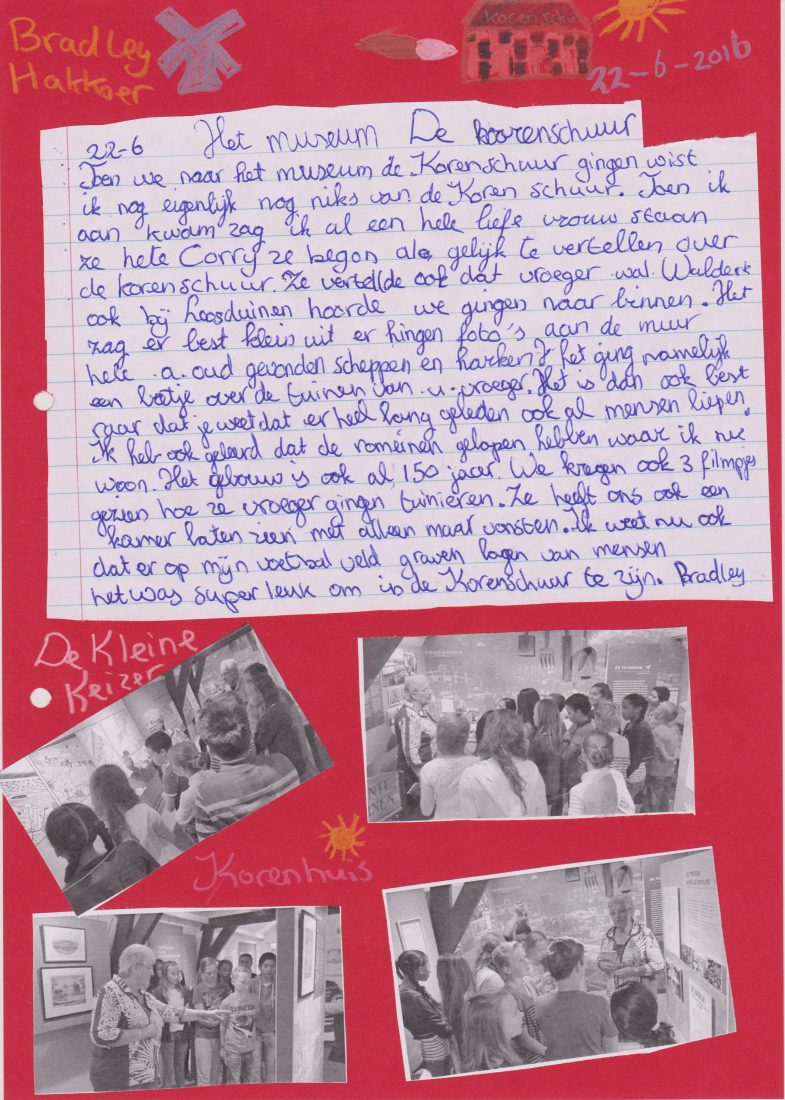 Bradley
Hakkoer
Korenschu
22-6-2016
22-6 Het museum De koorenschuur
Toen we naar het museum de Korenschuur gingen wist
ik nog eigenlijk nog niks van de Koren schuur. Toen ik
aan kwam zag ik al een hele liefe vrouw staan
ze hete Corry ze begon als gelijk te vertellen over
de korenschuur. Ze vertelde ook dat vroeger wal Walderk
ook bij Loosduinen hoorde we gingen naar binnen. Het
zag er best klein uit er hingen foto's aan de muur
hele a oud gevonden scheppen en harken het ging namelijk
een beetje over de tuinen van u vroeger. Het is dan ook best
raar dat je weet dat er heel lang geleden ook al mensen liepen.
Ik heb ook geleerd dat de romeinen gelopen hebben waar ik nu
woon. Het gebouw is ook al 150 jaar. We kregen ook 3 filmpjes
gezien hoe ze vroeger gingen tuinieren. Ze heeft ons ook een
kamer laten zien met alleen maar vonsten. Ik weet nu ook
dat er op mijn voetbal veld graven lagen van mensen
het was super leuk om in de Korenschuur te zijn. Bradley
De Kleine
Keizer
Korenhuis